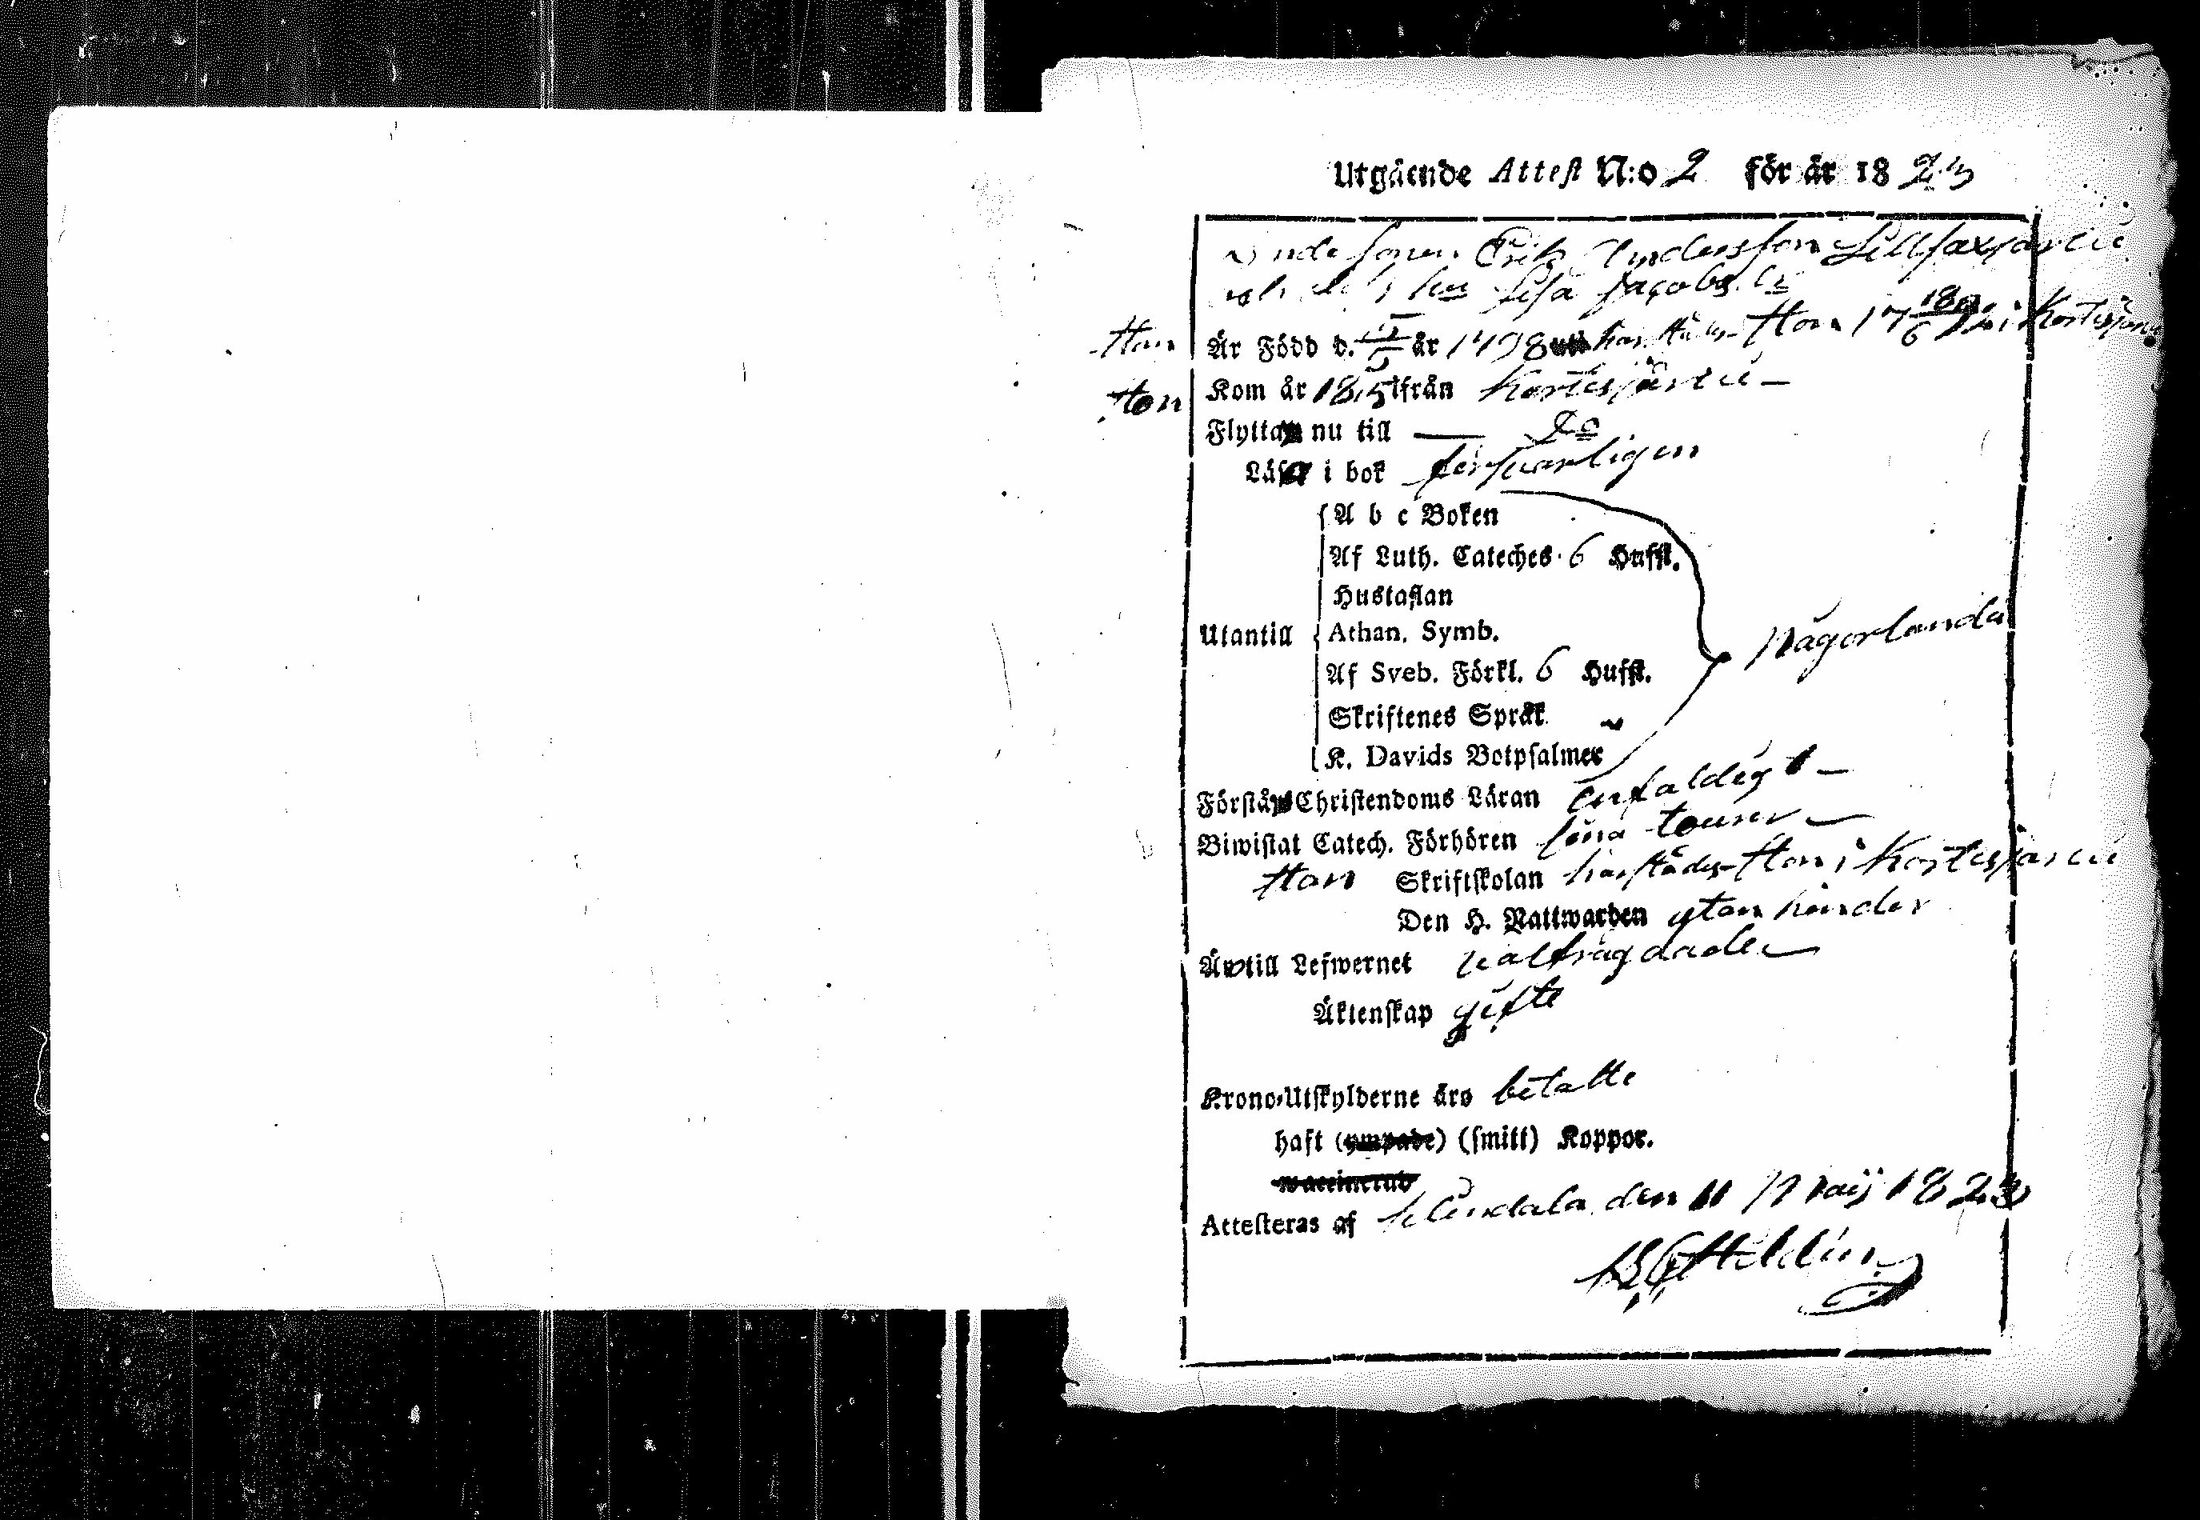 Utgående Attest N:o 2 för år 1823
Erik Andersson Lillkaxjärvi
Lisa Jacobs dr
Hon Är Född d. år 1798 härstädes Hon i Kortesjärvi
Hon Kom år 1815 ifrån Kortesjärvi –
Flytta nu till — Do
Läsa i bok försvarligen
A b c Boken
Af Luth. Cateches 6 Hufst.
Hustaflan
Utantill Athan. Symb. någorlunda
Af Sveb. Förkl. 6 Hufst.
Skriftenes Språk
K. Davids Botpsalmer
Förstå Christendoms Läran enfaldigt –
Biwistat Catech. Förhören sina tourer –
Hon Skriftskolan härstädes Hon i Kortesjärvi
Den H. Nattwarden utan hinder
Äro till Lefwernet välfrägdade
Äktenskap gifte
Krono-Utskylderne äro betalte
haft (ympade) (smitt) Koppor.
waccinerad
Attesteras af den 11 Maij 1823